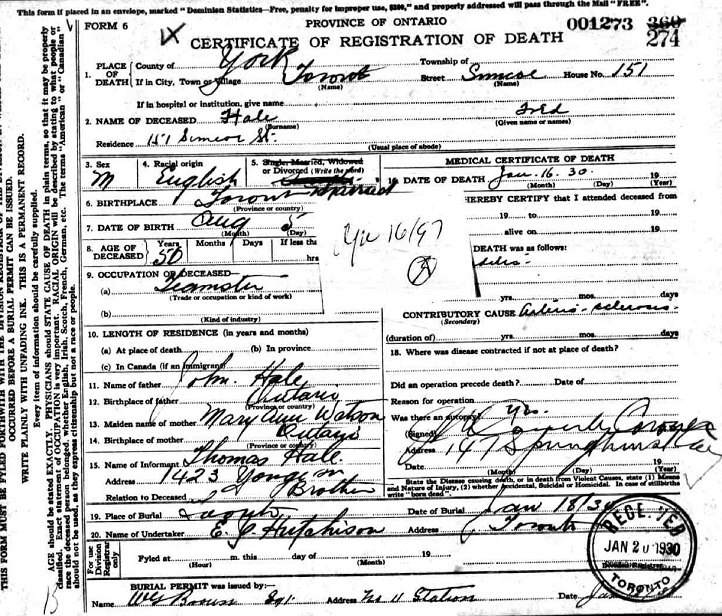 This form if placed in an envelope, marked "Dominion Statistics—Free, penalty for improper use, $300," and properly addressed will pass through the Mail "FREE".
FORM 6
PROVINCE OF ONTARIO
001273 360
274
IX
CERTIFICATE OF REGISTRATION OF DEATH
1. PLACE OF DEATH
County of York
Township of
If in City, Town or Village Toronto
(Name)
Street Simcoe House No. 151
(Name)
If in hospital or institution, give name
2. NAME OF DECEASED Hale Fred
(Surname) (Given name or names)
Residence 151 Simcoe St.
(Usual place of abode)
3. Sex M
4. Racial origin English
5. Single, Married, Widowed or Divorced (Write the word)
Married
6. BIRTHPLACE Toronto
(Province or country)
7. DATE OF BIRTH Aug 5
(Month) (Day)
8. AGE OF DECEASED
Years Months Days If less tha
50 hrs
9. OCCUPATION OF DECEASED—
(a) Teamster
(Trade or occupation or kind of work)
(b)
(Kind of industry)
10. LENGTH OF RESIDENCE (in years and months)
(a) At place of death (b) In province
(c) In Canada (if an immigrant)
11. Name of father John Hale
12. Birthplace of father Ontario
(Province or country)
13. Maiden name of mother Mary Ann Watson
14. Birthplace of mother Ontario
(Province or country)
15. Name of Informant Thomas Hale
Address 1423 Yonge
Relation to Deceased Brother
MEDICAL CERTIFICATE OF DEATH
16. DATE OF DEATH Jan. 16. 30. 19
(Month) (Day) (Year)
HEREBY CERTIFY that I attended deceased from
19 to 19
alive on 19
DEATH was as follows:
16/97
yrs. mos. days
CONTRIBUTORY CAUSE Arterio-sclerosis
(Secondary)
(duration of) yrs. mos. days
18. Where was disease contracted if not at place of death?
Did an operation precede death? Date of
Reason for operation
Was there an autopsy? Yes.
(Signed) Coroner
Address 147 Springhurst Ave
Date (Month) (Day) 19
State the Disease causing death, or in death from Violent Causes, state (1) Means and Nature of Injury, (2) whether Accidental, Suicidal or Homicidal. In case of stillbirths write "born dead".
19. Place of Burial Date of Burial Jan 18/30
20. Name of Undertaker E. J. Hutchison Address Toronto
For use Division Registrar only
Fyled at m. this day of 19
(Hour) (Month)
RECEIVED
JAN 20 1930
TORONTO
BURIAL PERMIT was issued by:
Name Wes Brown Address No 11 Station Date
THIS FORM MUST BE FYLED FORTHWITH WITH THE DIVISION REGISTRAR OF THE DIVISION
OCCURRED BEFORE A BURIAL PERMIT CAN BE ISSUED
WRITE PLAINLY WITH UNFADING INK. THIS IS A PERMANENT RECORD.
Every item of information should be carefully supplied.
AGE should be stated EXACTLY. PHYSICIANS should STATE CAUSE OF DEATH in plain terms, so that it may be properly
classified. Exact statement of OCCUPATION is very important. RACIAL ORIGIN will be described by stating to what people or
race the deceased person belonged, whether English, Irish, Scotch, French, German, etc. The terms "American" or "Canadian"
should not be used, as they express citizenship but not a race or people.